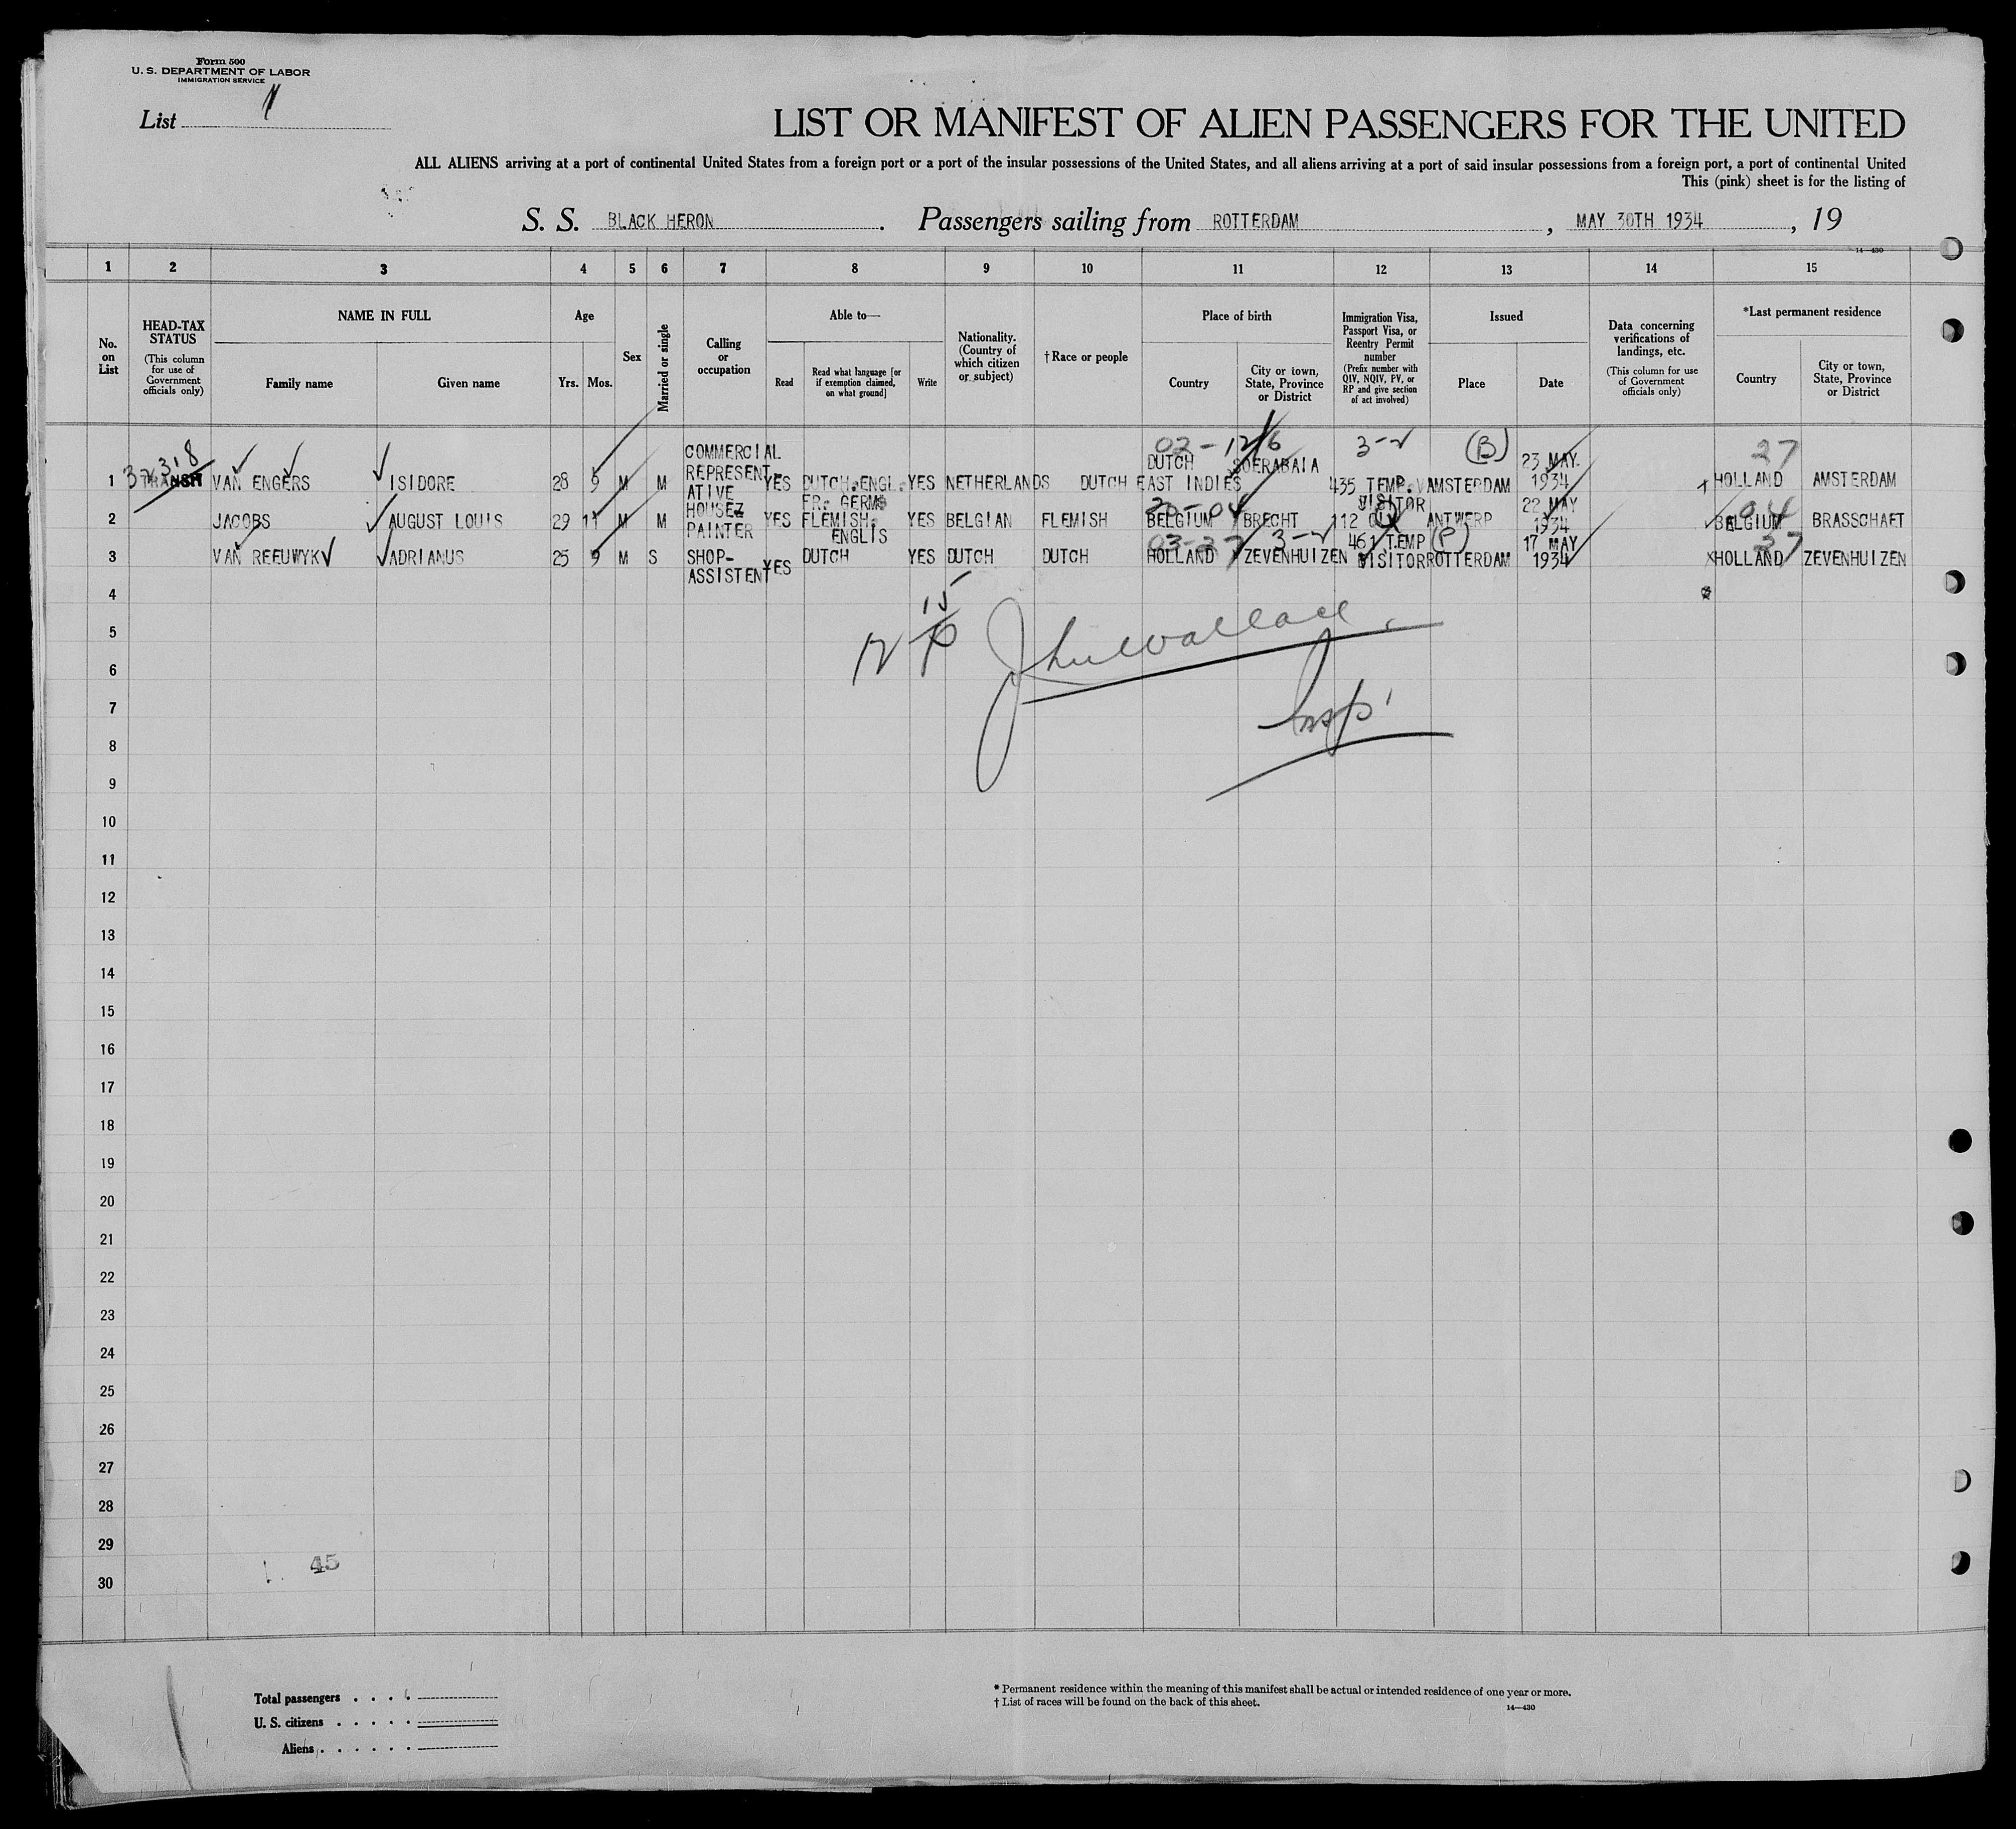 Form 500
U. S. DEPARTMENT OF LABOR
IMMIGRATION SERVICE
List
LIST OR MANIFEST OF ALIEN PASSENGERS FOR THE UNITED
ALL ALIENS arriving at a port of continental United States from a foreign port or a port of the insular possessions of the United States, and all aliens arriving at a port of said insular possessions from a foreign port, a port of continental United
This (pink) sheet is for the listing of
S. S. BLACK HERON. Passengers sailing from ROTTERDAM, MAY 30TH 1934, 19
14—430
1 2 3 4 5 6 7 8 9 10 11 12 13 14 15
No. on List
HEAD-TAX STATUS (This column for use of Government officials only)
NAME IN FULL
Family name
Given name
Age
Yrs.
Mos.
Sex
Married or single
Calling or occupation
Able to—
Read
Read what language [or if exemption claimed, on what ground]
Write
Nationality. (Country of which citizen or subject)
†Race or people
Place of birth
Country
City or town, State, Province or District
Immigration Visa, Passport Visa, or Reentry Permit number (Prefix number with QIV, NQIV, PV, or RP and give section of act involved)
Issued
Place
Date
Data concerning verifications of landings, etc. (This column for use of Government officials only)
*Last permanent residence
Country
City or town, State, Province or District
1 TRANSIT VAN ENGERS ISIDORE 28 9 M M COMMERCIAL REPRESENTATIVE YES DUTCH.ENGL. FR. GERM YES NETHERLANDS DUTCH DUTCH EAST INDIES SOERABAIA 435 TEMP. VISITOR AMSTERDAM 23 MAY 1934 HOLLAND AMSTERDAM
02-12/6 3-2 (B) 27
2 JACOBS AUGUST LOUIS 29 11 M M HOUSE PAINTER YES FLEMISH. ENGLIS YES BELGIAN FLEMISH BELGIUM BRECHT 112 ANTWERP 22 MAY 1934 BELGIUM BRASSCHAET
3 VAN REEUWYK ADRIANUS 25 9 M S SHOP-ASSISTENT YES DUTCH YES DUTCH DUTCH HOLLAND ZEVENHUIZEN 461 TEMP VISITOR ROTTERDAM 17 MAY 1934 HOLLAND ZEVENHUIZEN
3-2 (P) 27
4
5
6
7
8
9
10
11
12
13
14
15
16
17
18
19
20
21
22
23
24
25
26
27
28
29
30
Wallace
Insp
45
Total passengers
U. S. citizens
Aliens
* Permanent residence within the meaning of this manifest shall be actual or intended residence of one year or more.
† List of races will be found on the back of this sheet.
14—430